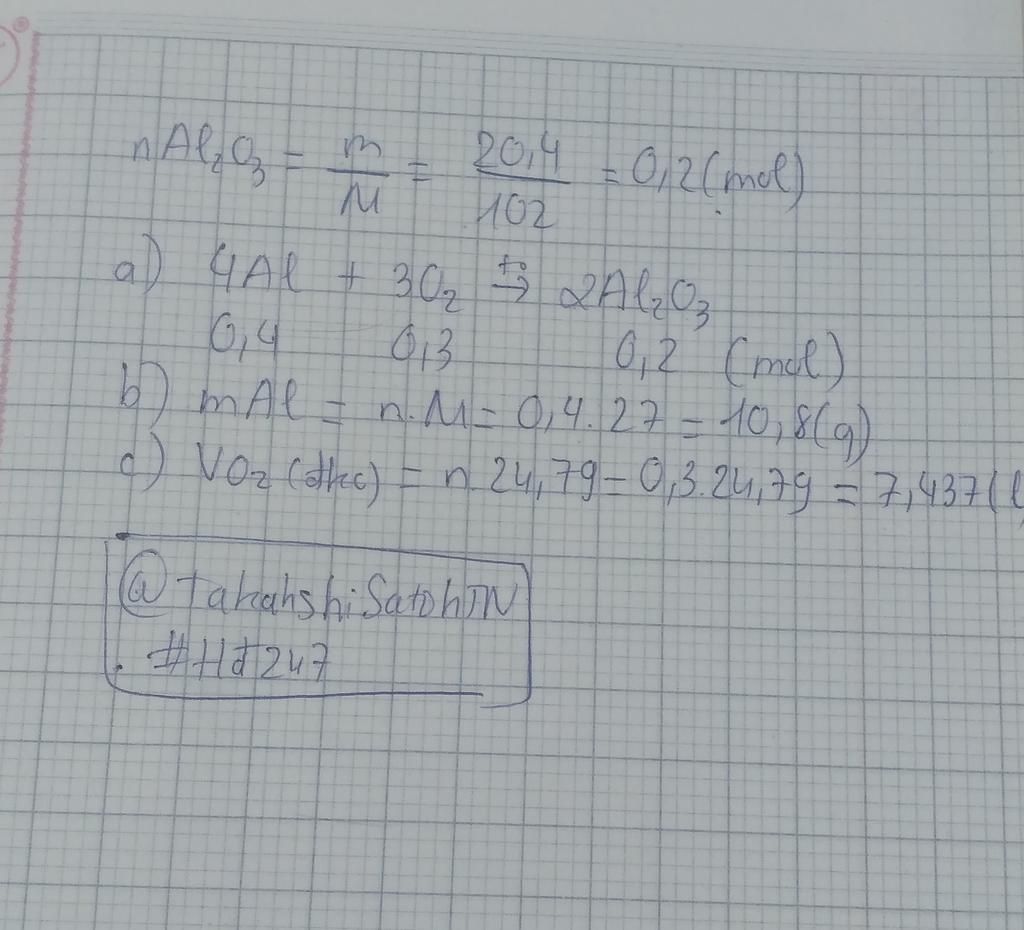 nAl₂O₃ = m/M = 20,4/102 = 0,2 (mol)
a) 4Al + 3O₂ t°→ 2Al₂O₃
0,4 0,3 0,2 (mol)
b) mAl = n.M = 0,4.27 = 10,8(g)
c) VO₂ (đkc) = n.24,79 = 0,3.24,79 = 7,437(l
@TakahshiSatohTN
#Hđ247